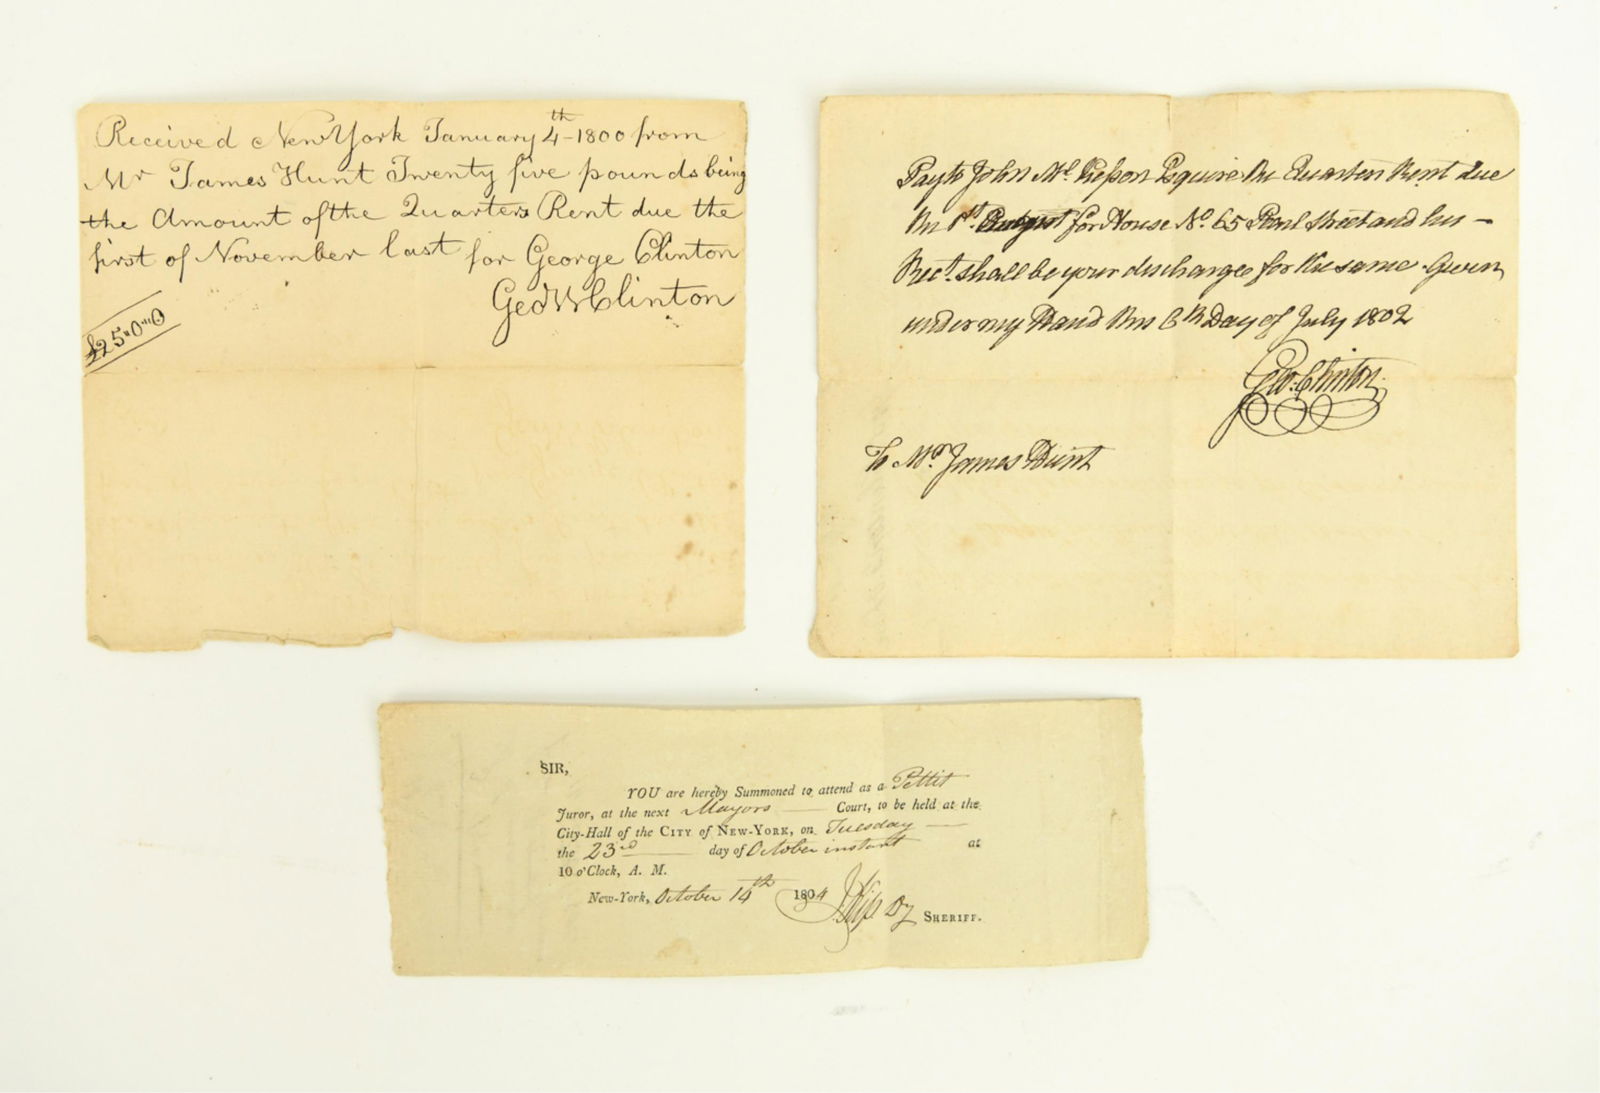 Received New York January 4th - 1800 from
Mr James Hunt Twenty five pounds being
the Amount of the Quarters Rent due the
first of November last for George Clinton
Geo W Clinton
£25"0"0
Pay to John Mc Kesson Esquire the Quarters Rent due
the 1st August for House No. 65 Pearl Street and his -
Rect. shall be your discharge for the same. Given
under my Hand this 6th Day of July 1802
Geo. Clinton
To Mr. James Hunt
SIR,
YOU are hereby Summoned to attend as a Pettit
Juror, at the next Mayors Court, to be held at the
City-Hall of the CITY of NEW-YORK, on Tuesday
the 23rd day of October instant at
10 o'Clock, A. M.
New-York, October 14th 1804
Dy SHERIFF.